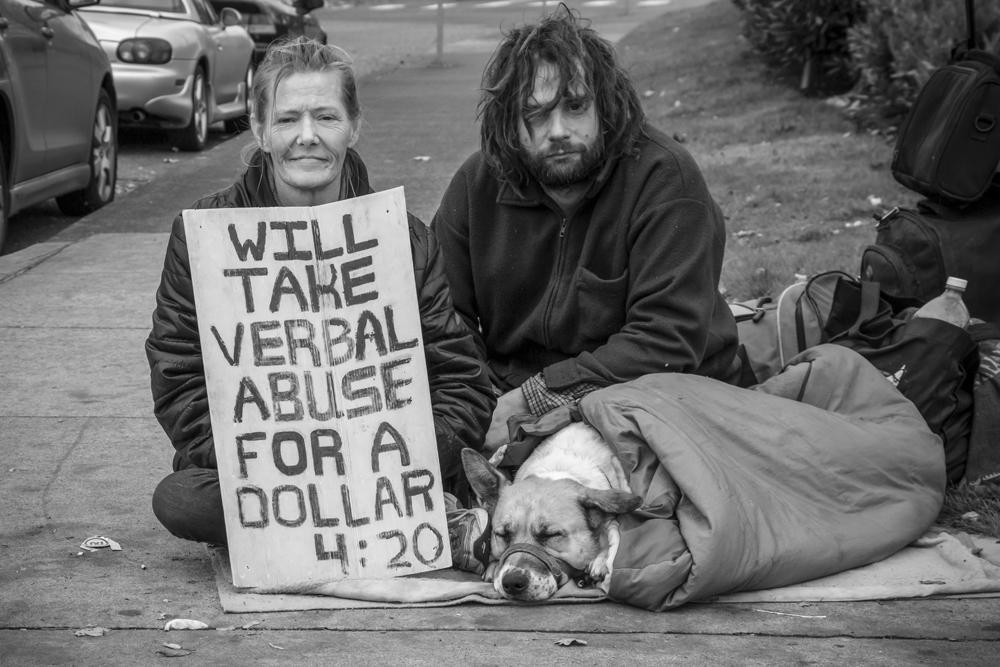 WILL
TAKE
VERBAL
ABUSE
FOR A
DOLLAR
4:20